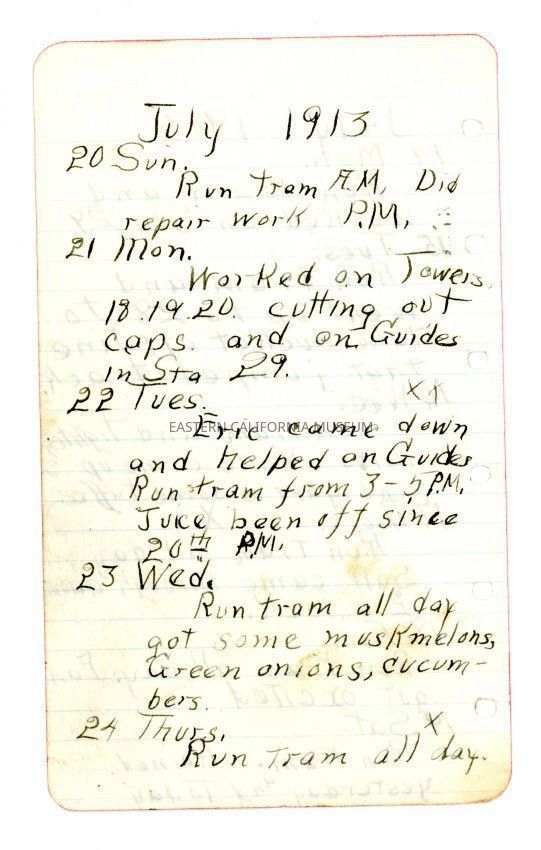 July 1913
20 Sun.
Run tram A.M. Did
repair work P.M.
21 Mon.
Worked on Towers
18.19.20. cutting out
caps. and on Guides
in Sta 29.
22 Tues.
EASTERN CALIFORNIA MUSEUM
Eric came down
and helped on Guides
Run tram from 3-5 P.M.
Juice been off since
20th P.M.
23 Wed.
Run tram all day
got some muskmelons,
Green onions, cucum-
bers.
24 Thurs.
Run tram all day.